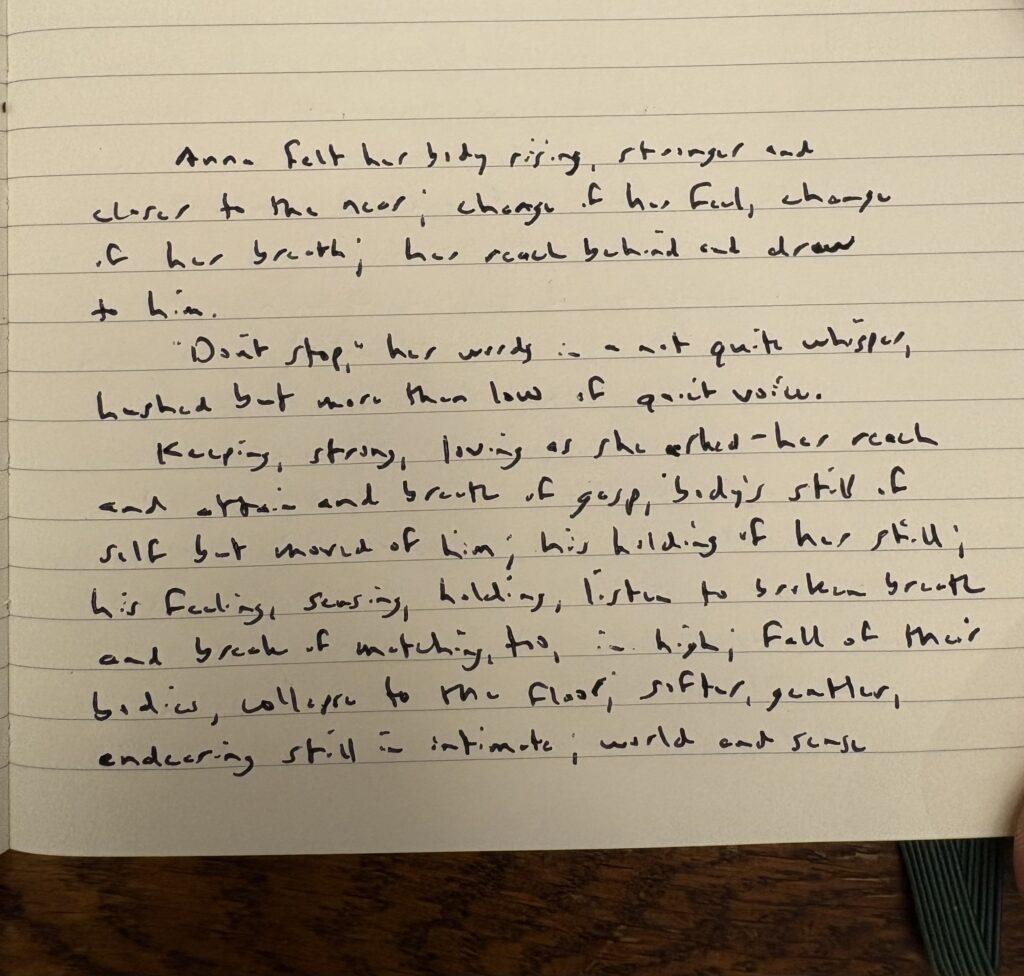 Anna felt her body rising, stronger and
closer to the near; change of her feel, change
of her breath; her reach behind and draw
to him.
"Don't stop," her words in a not quite whisper,
hushed but more than low of quiet voice.
Keeping, strong, loving as she asked - her reach
and attain and breath of gasp, body's still of
self but moved of him; his holding of her still;
his feeling, sensing, holding, listen to broken breath
and break of matching, too, in high; fall of their
bodies, collapse to the floor; softer, gentler,
endearing still in intimate; world and sense